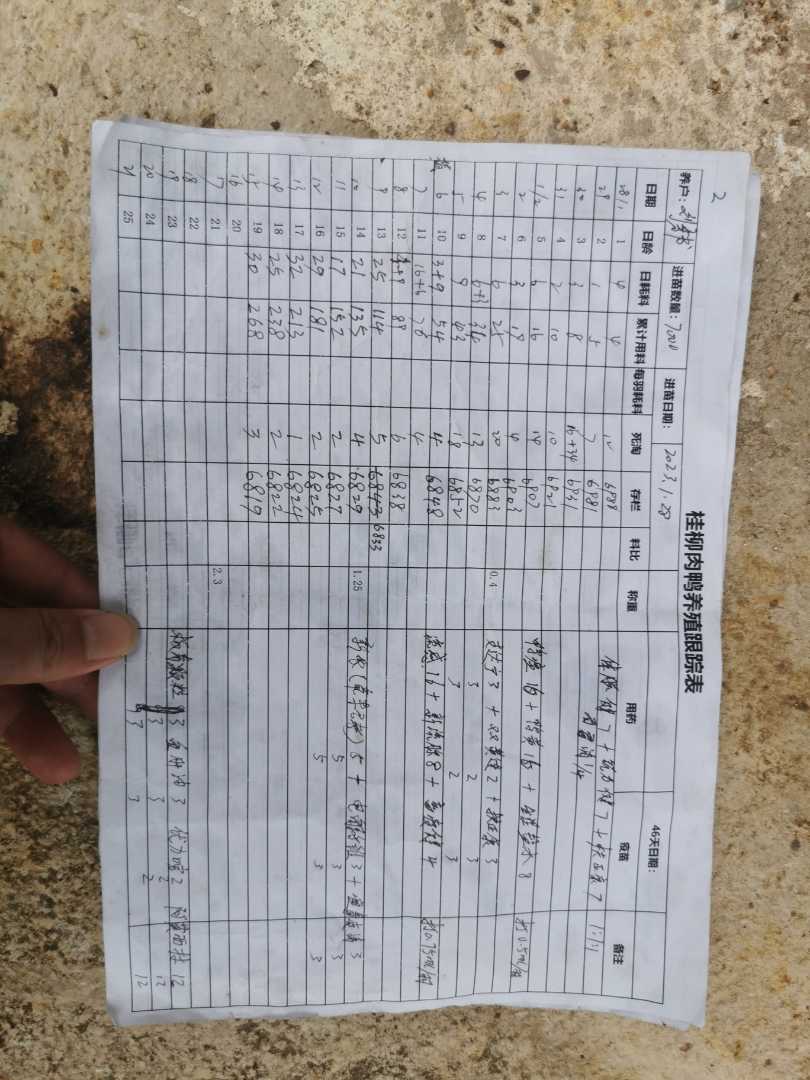 2
桂柳肉鸭养殖跟踪表
养户: 进苗数量: 7000 进苗日期: 2023.1.28 46天日期:
日期 日龄 日耗料 累计用料 每羽耗料 死淘 存栏 料比 称重 用药 疫苗 备注
28/1 1 4 4 12 6988
29 2 1 5 7 6981 1:1:1
30 3 3 8 16+34 6931
31 4 2 10 10 6921
1/2 5 6 16 14 6907
2 6 3 19 4 6903 打0.5ml/羽
3 7 6 25 20 6883 0.4 3 + 双黄连2 + 3
4 8 6+3 34 13 6870 3 2 3
5 9 9 43 18 6852 3 2 3
6 10 3+9 54 4 6848 流感16 + 8 + 4 打0.75ml/羽
7 11 16+6 76 4
8 12 88 6 6838
9 13 25 114 5 6833
10 14 21 135 4 6829 1.25 新农 5 + 3 + 3
11 15 17 152 2 6827 5 3 3
12 16 29 181 2 6825 5 3 3
13 17 32 213 1 6824
14 18 25 238 2 6822
15 19 30 268 3 6819
16 20
17 21 2.3
18 22
19 23 板青颗粒 3 鱼肝油 3 2 12
20 24 3 3 2 12
21 25 3 3 2 12